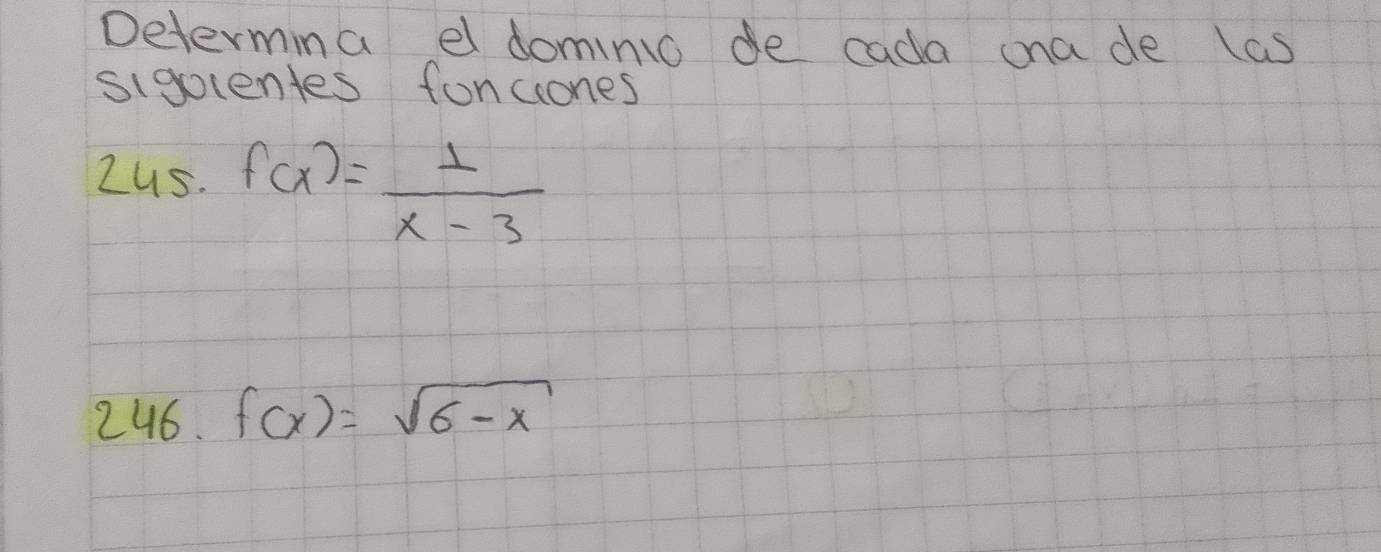 Determina el dominio de cada una de las
siguientes funciones
245. f(x) = 1 / x - 3
246. f(x) = √6 - x